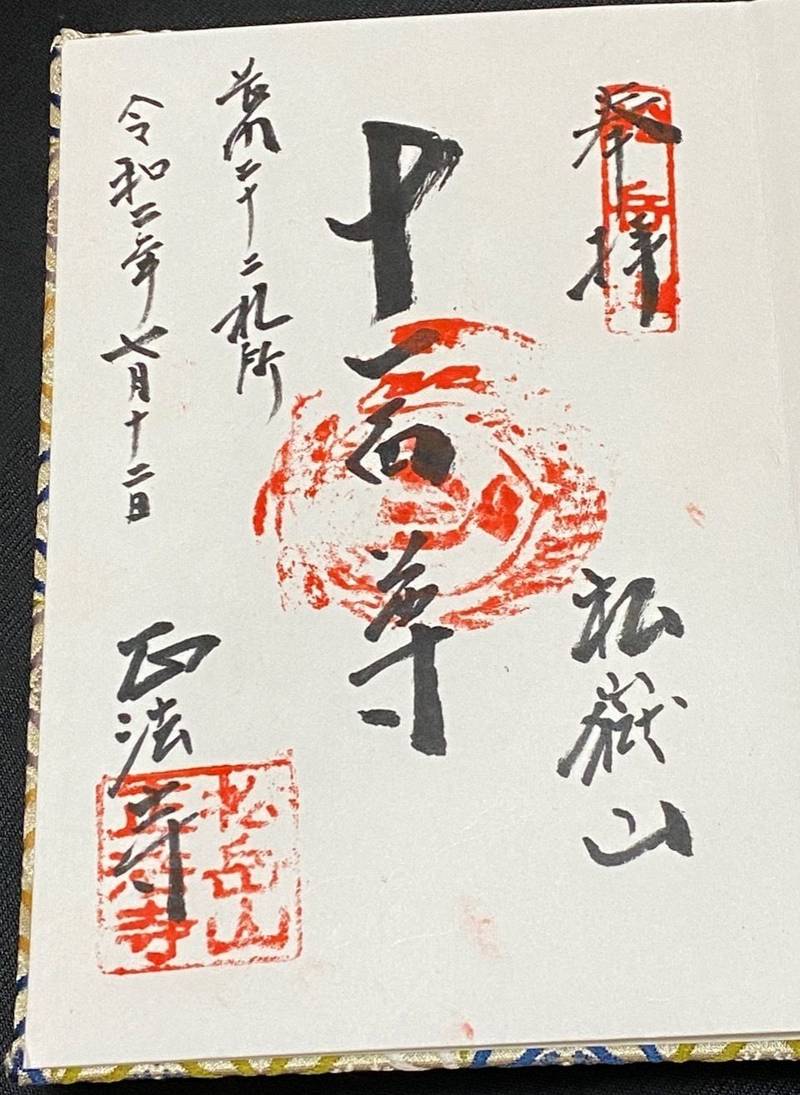 奉拝
松嶽山
十一面尊
長 二十二札所
令和二年七月十二日
正法寺
松岳山
正法寺